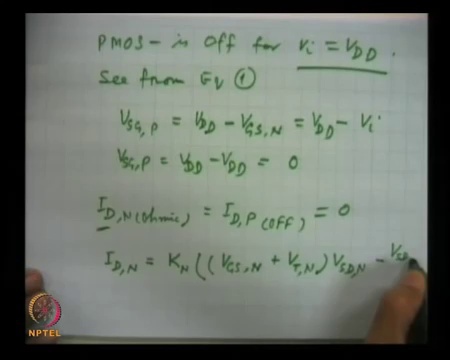 PMOS - is Off for Vi = VDD.
See from EV ①
VSG,P = VDD - VGS,N = VDD - Vi
VSG,P = VDD - VDD = 0
ID,N (ohmic) = ID,P (OFF) = 0
ID,N = KN ((VGS,N + VT,N) VSD,N - VSD
NPTEL